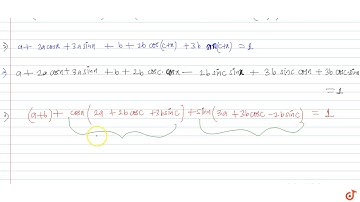 ⇒) a + 2a cosx + 3a sinx + b + 2b cos(c+x) + 3b sin(c+x) = 1
⇒) a + 2a cosx + 3a sinx + b + 2b cosc cosx − 2b sinc sinx + 3b sinc cosx + 3b cosc sinx
= 1
⇒) (a+b) + cosx (2a + 2b cosc + 3b sinc) + sinx (3a + 3b cosc − 2b sinc) = 1